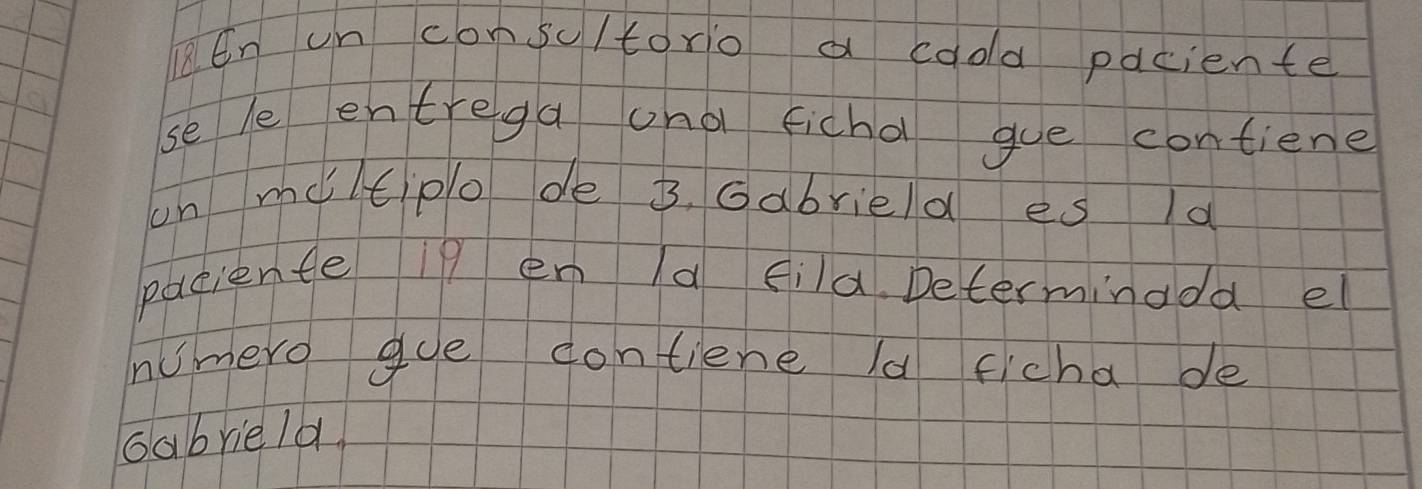 18. En un consultorio a cada paciente
se le entrega una ficha que contiene
un múltiplo de 3. Gabriela es la
paciente 19 en la fila. Determinada el
número que contiene la ficha de
Gabriela.